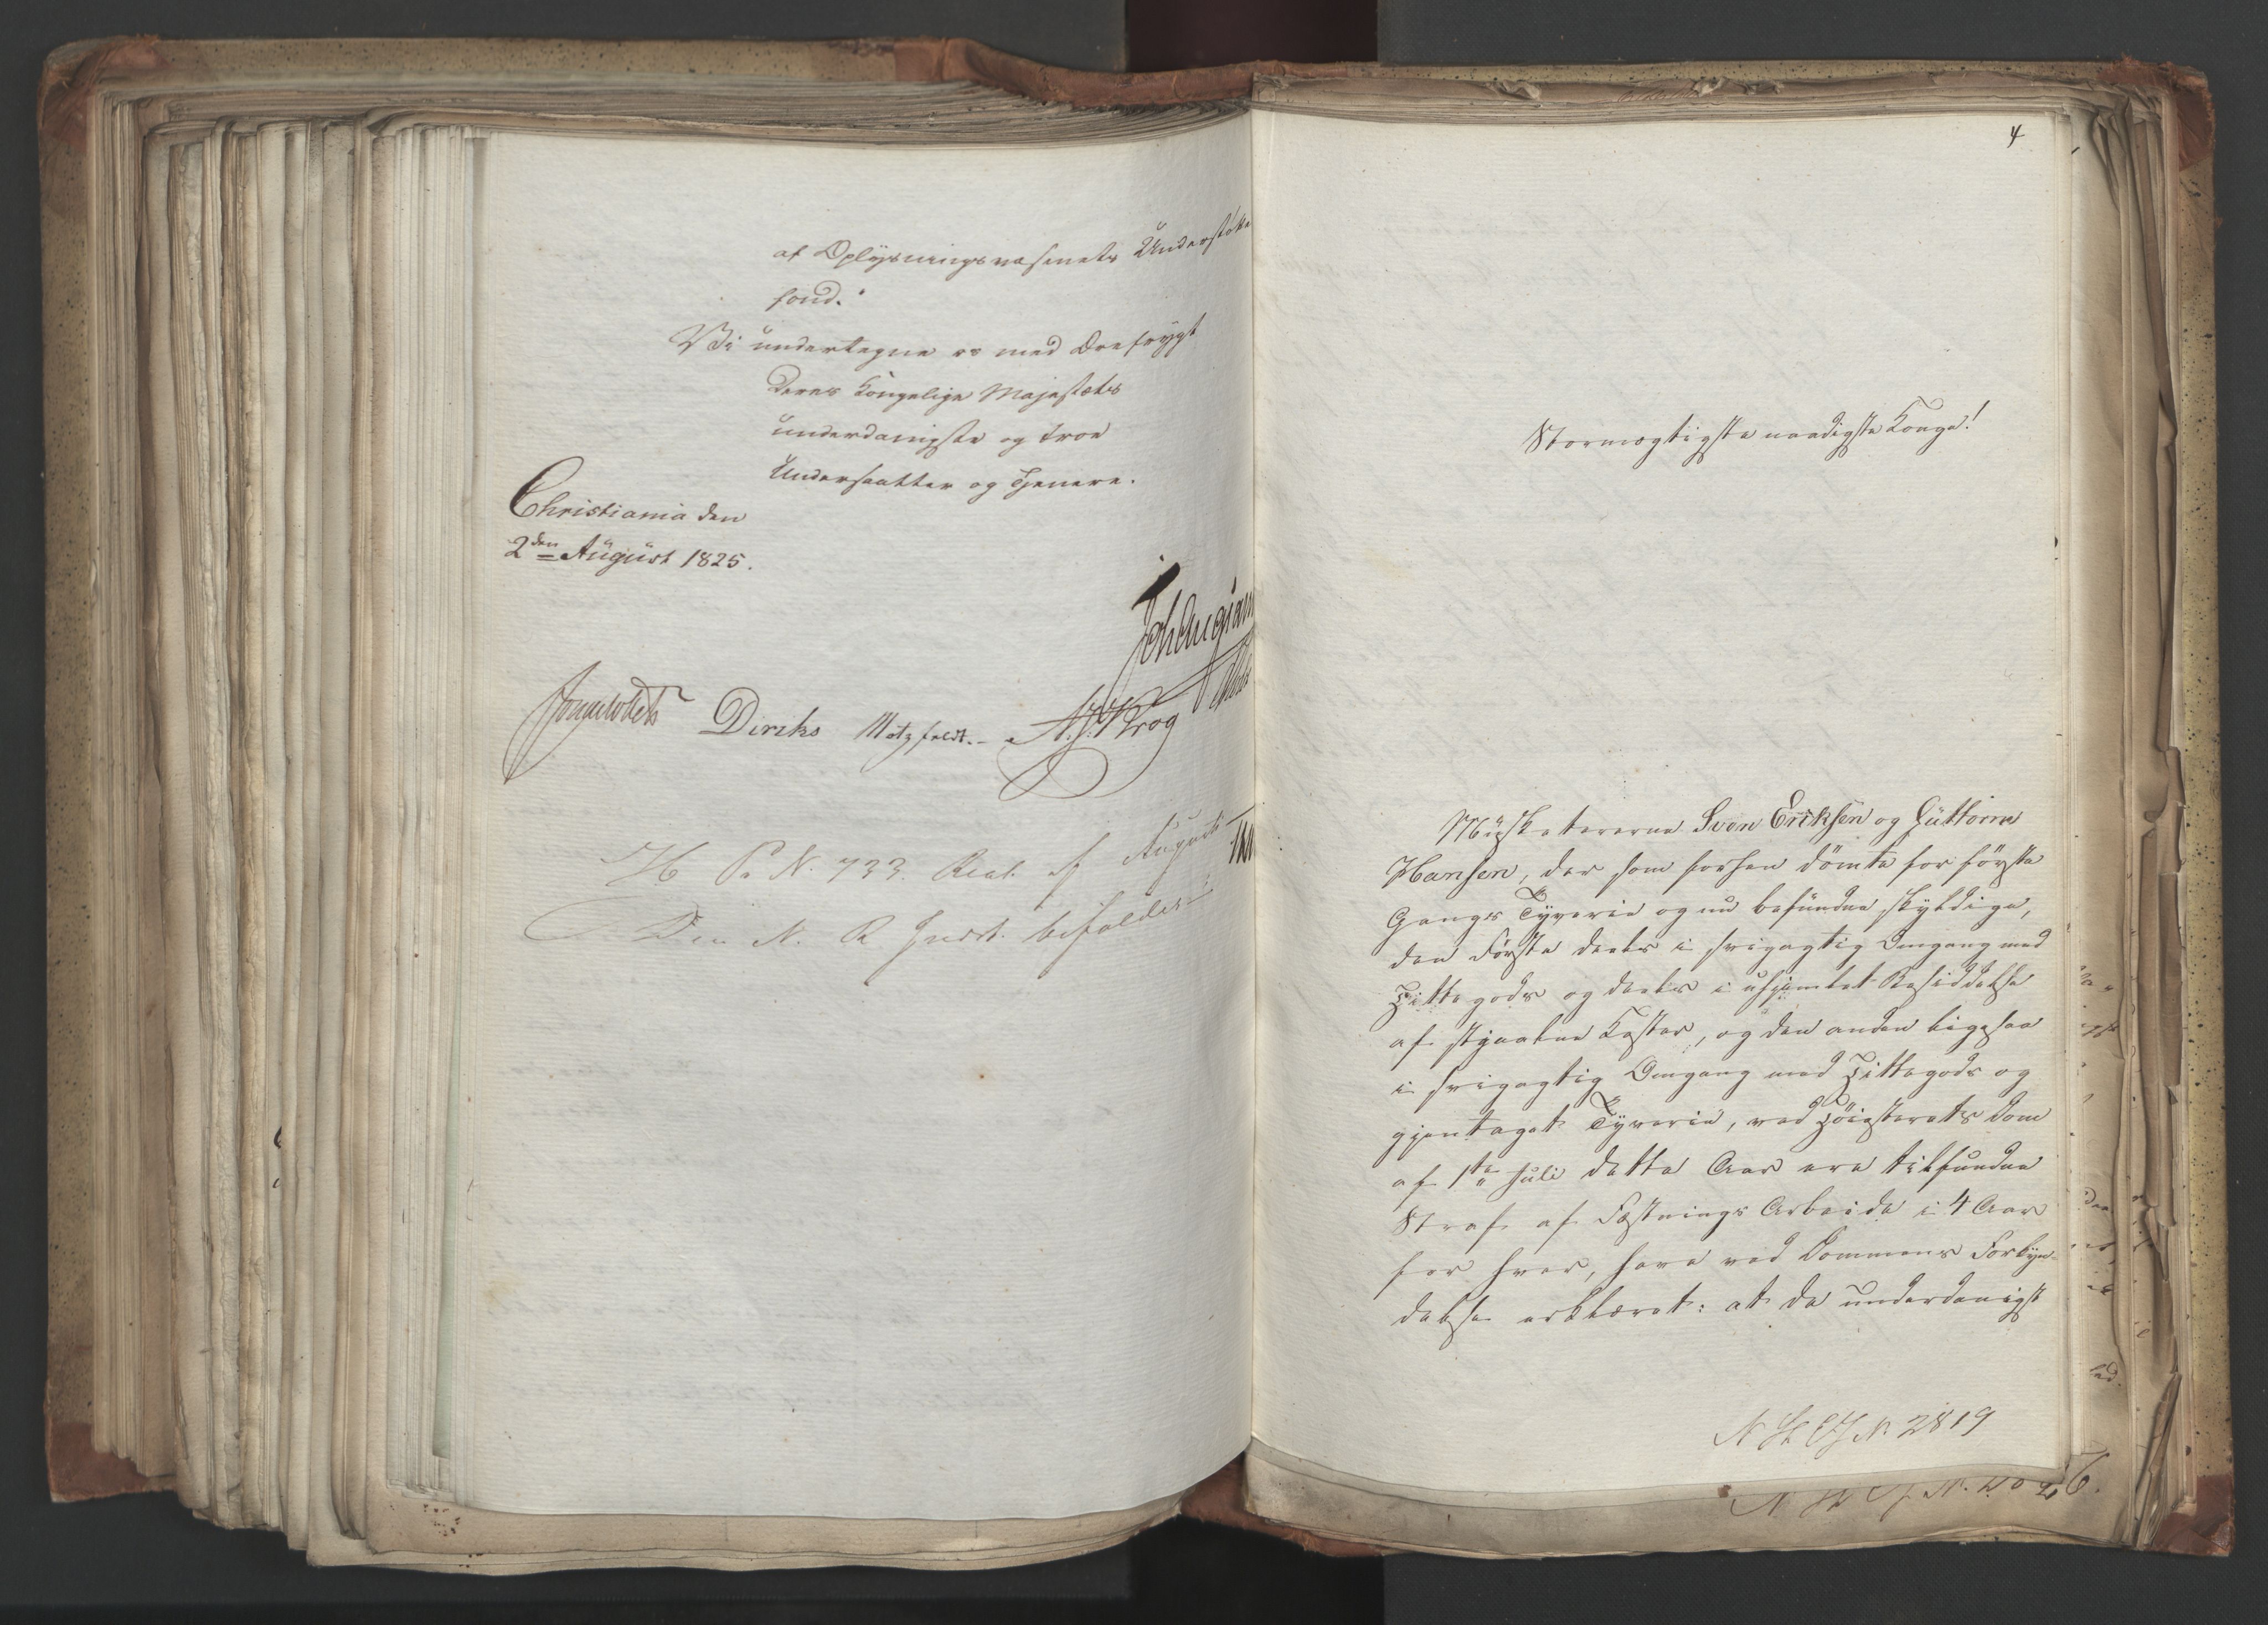 af Oplysningsvæsenets Understøttel
fond.
Vi undertegne os med Ærefrygt
Deres Kongelige Majestæts
underdanigste og troe
Undersaatter og Tjenere.
Christiania den
2den August 1825.
Diriks Motzfeldt. A. J. Krog
H P. N. 733. August
Den N. R Indst. bifaldes
4
Stormægtigste naadigste Konge!
Musketererne Sven Eriksen og Guttorm
Hansen, der som forhen dömte for förste
Gangs Tyverie og nu befundne skyldige,
den Förste deels i svigagtig Omgang med
Hittegods og deels i uhjemlet Besiddelse
af stjaalne Koster, og den anden ligesaa
i svigagtig Omgang med Hittegods og
gjentaget Tyverie, ved Höiesterets Dom
af 1te Juli dette Aar ere tilfundne
Straf af Fæstnings Arbeide i 4 Aar
for hver, have ved Dommens Forkyn-
delse erklæret: at de underdanigst
N. 2819